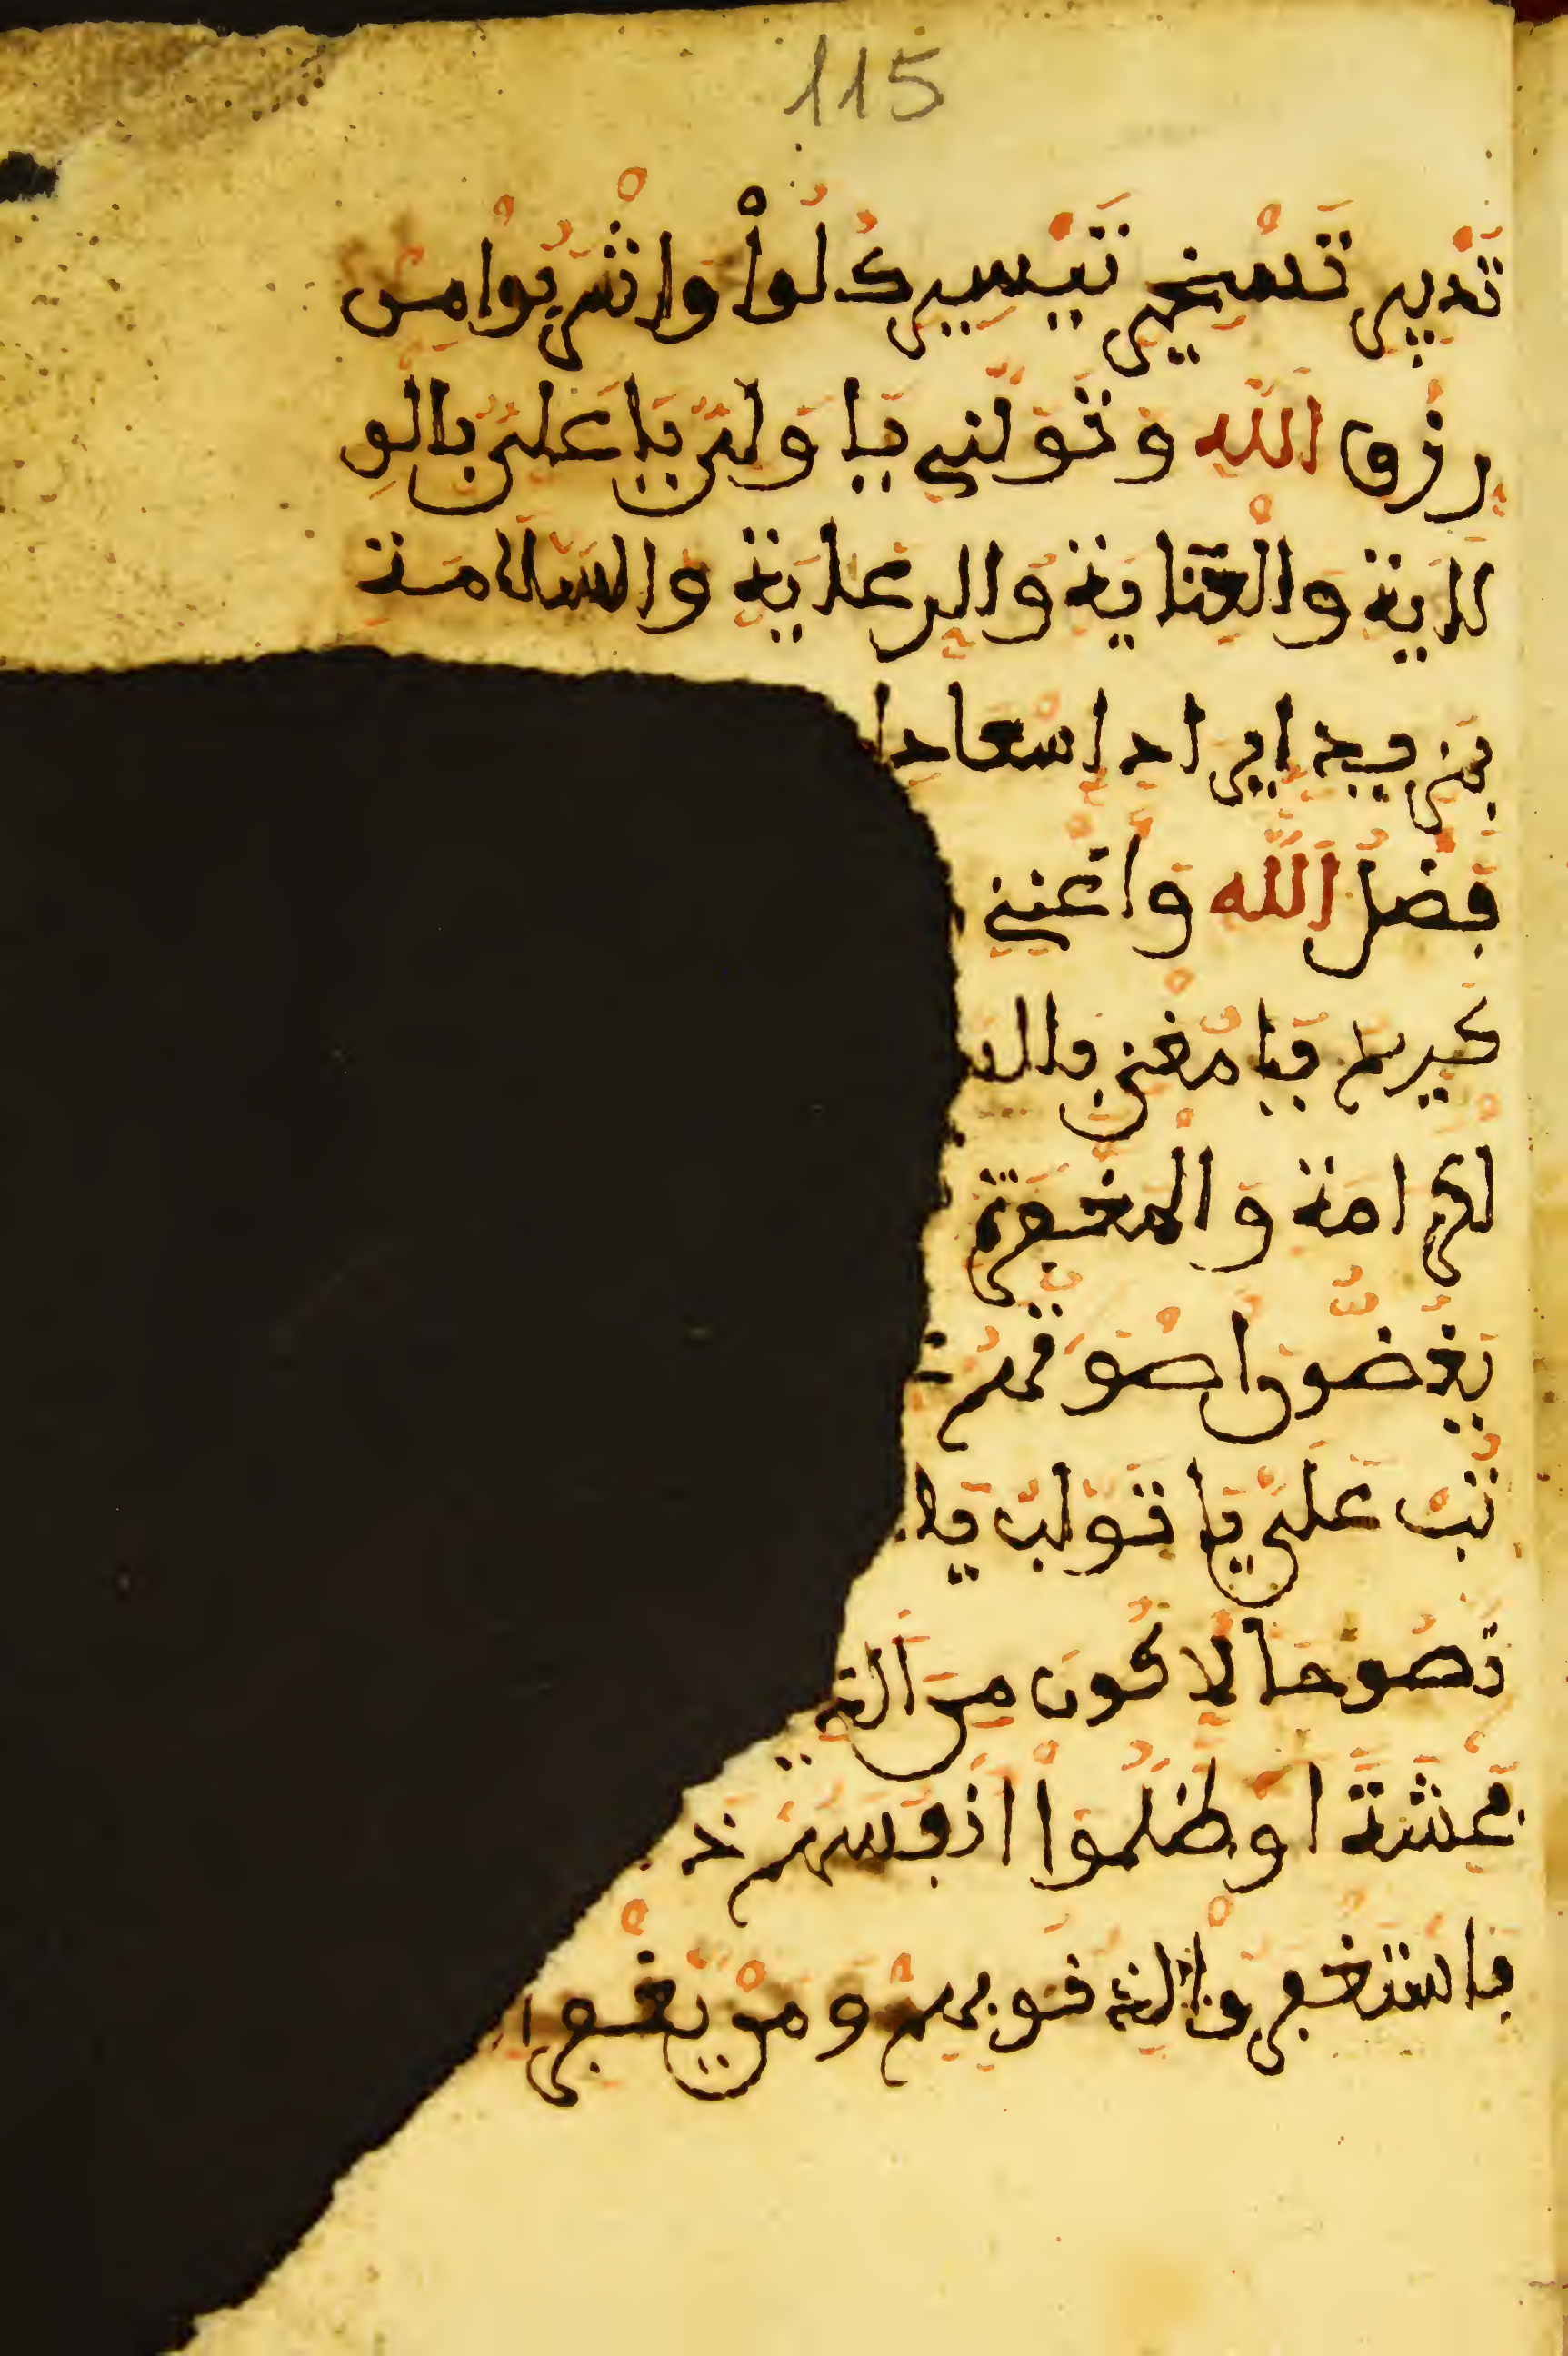 115
تدبير تسخير تيسير كلوا واشربوا من
رزق الله وتولني يا ولي يا علي بالو
لاية والعناية والرعاية والسلامة
بمزيد ايراد اسعاد ا
فضل الله واغنني
كريم يا مغني
لكرامة والمغفرة
يغضون اصوتهم
تب علي يا تواب يا
نصوحا لاكون من
حشة او ظلموا انفسهم
فاستغفروا لذنوبهم ومن يغفر ا